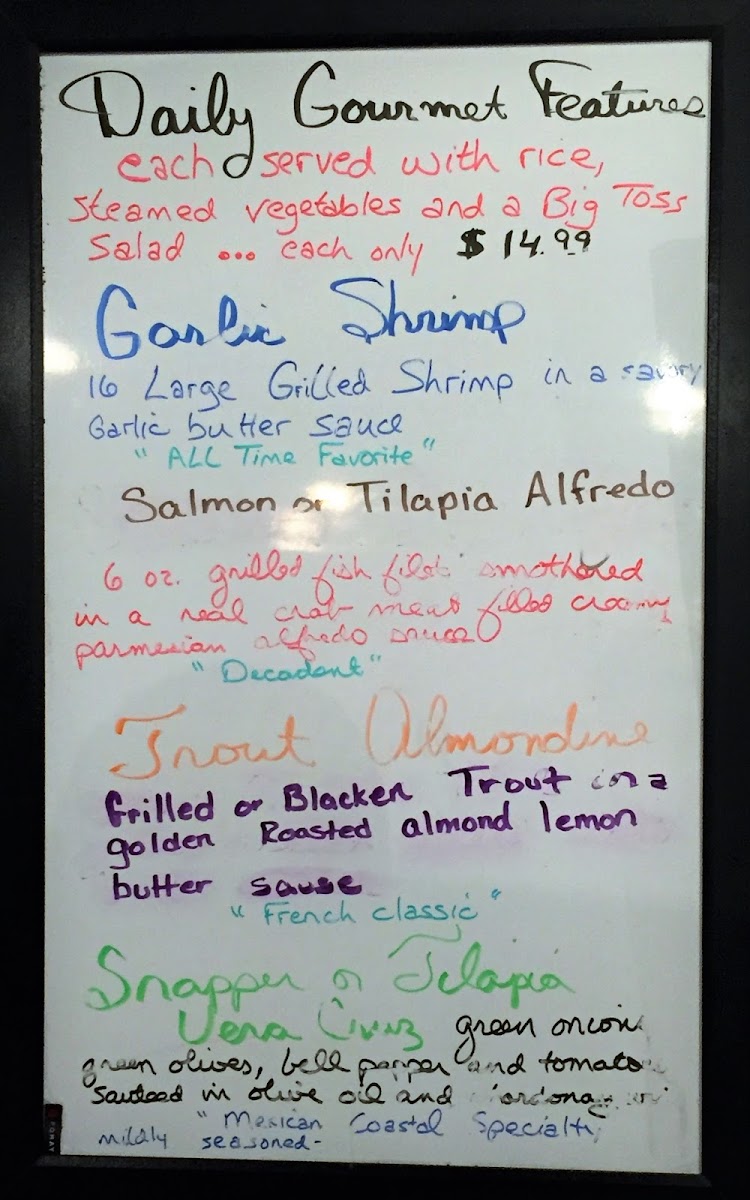 Daily Gourmet Features
each served with rice,
steamed vegetables and a Big Toss
Salad ... each only $14.99
Garlic Shrimp
16 Large Grilled Shrimp in a savory
Garlic butter sauce
"ALL Time Favorite"
Salmon or Tilapia Alfredo
6 oz. grilled fish filet smothered
in a real crab meat filled creamy
parmesian alfredo sauce
"Decadant"
Trout Almondine
Grilled or Blacken Trout in a
golden Roasted almond lemon
butter sause
"French classic"
Snapper or Tilapia
Vera Cruz green onion
green olives, bell pepper and tomato
sauteed in olive oil and
"Mexican Coastal Specialty
mildly seasoned-